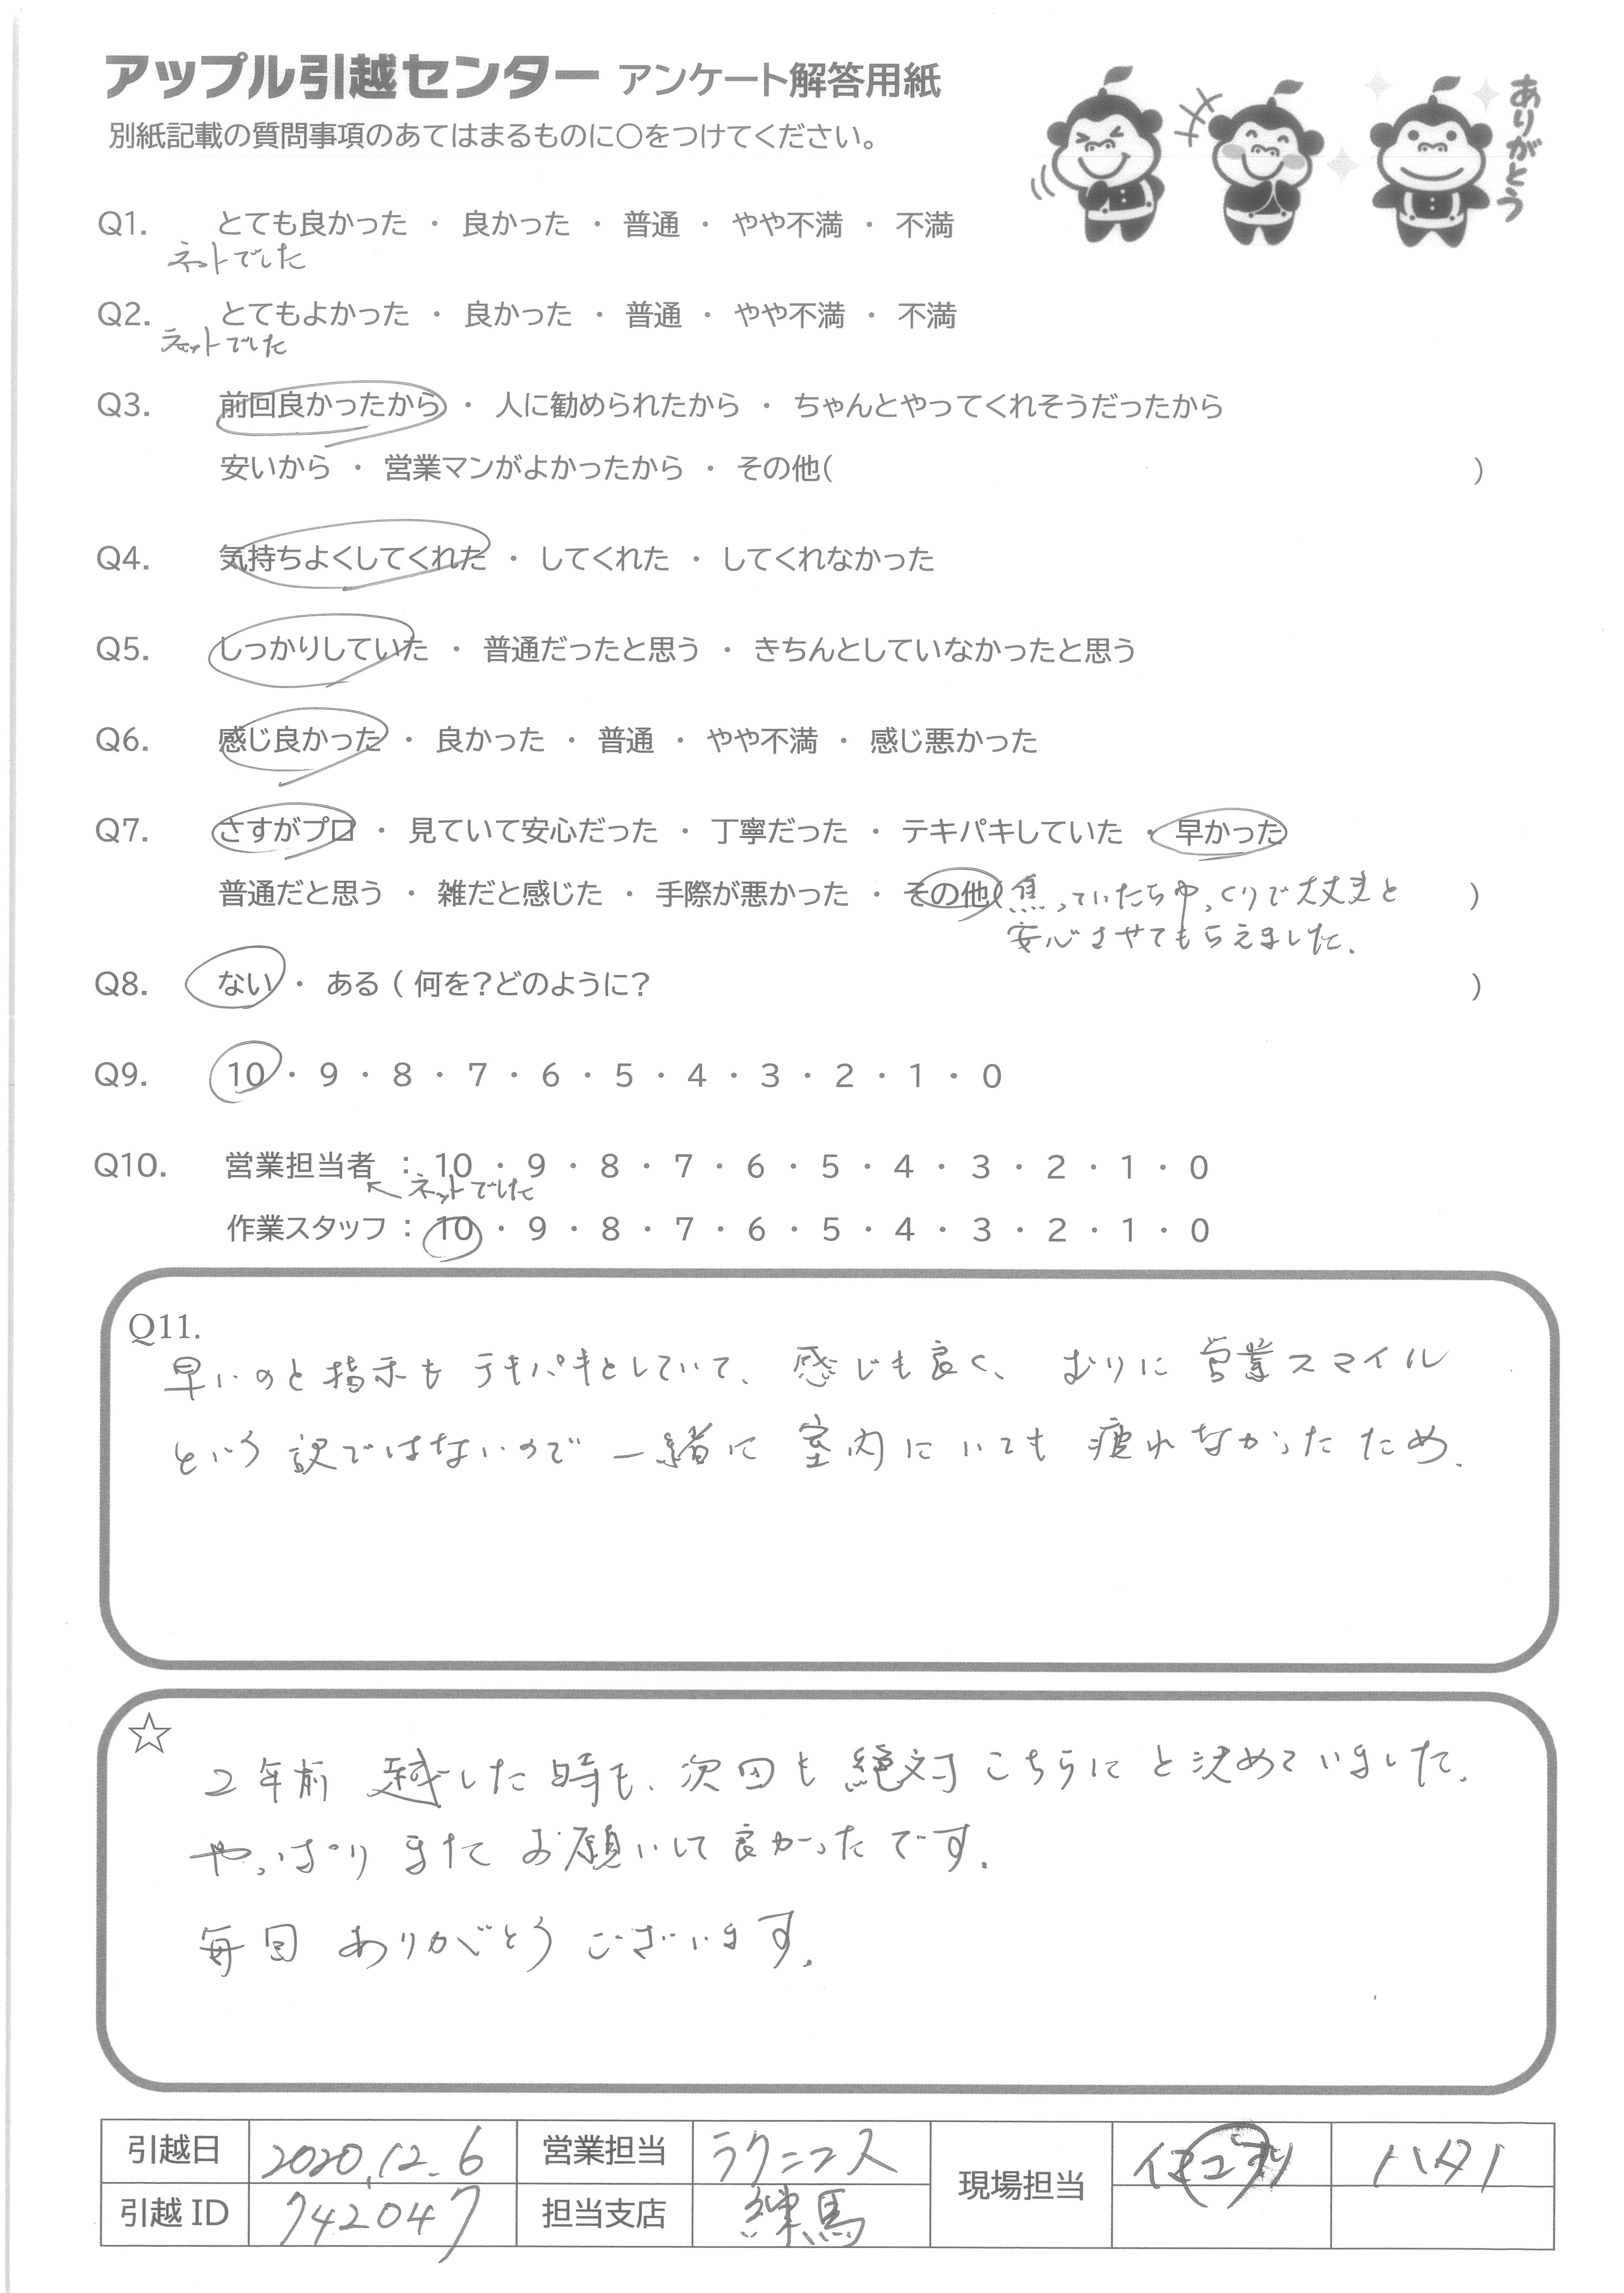 アップル引越センター アンケート解答用紙
別紙記載の質問事項のあてはまるものに○をつけてください。
ありがとう
Q1. とても良かった ・ 良かった ・ 普通 ・ やや不満 ・ 不満
ネットでした
Q2. とてもよかった ・ 良かった ・ 普通 ・ やや不満 ・ 不満
ネットでした
Q3. 前回良かったから ・ 人に勧められたから ・ ちゃんとやってくれそうだったから
安いから ・ 営業マンがよかったから ・ その他( )
Q4. 気持ちよくしてくれた ・ してくれた ・ してくれなかった
Q5. しっかりしていた ・ 普通だったと思う ・ きちんとしていなかったと思う
Q6. 感じ良かった ・ 良かった ・ 普通 ・ やや不満 ・ 感じ悪かった
Q7. さすがプロ ・ 見ていて安心だった ・ 丁寧だった ・ テキパキしていた ・ 早かった
普通だと思う ・ 雑だと感じた ・ 手際が悪かった ・ その他(焦っていたらゆっくりで大丈夫と )
安心させてもらえました.
Q8. ない ・ ある ( 何を?どのように? )
Q9. 10 ・ 9 ・ 8 ・ 7 ・ 6 ・ 5 ・ 4 ・ 3 ・ 2 ・ 1 ・ 0
Q10. 営業担当者 : 10 ・ 9 ・ 8 ・ 7 ・ 6 ・ 5 ・ 4 ・ 3 ・ 2 ・ 1 ・ 0
←ネットでした
作業スタッフ : 10 ・ 9 ・ 8 ・ 7 ・ 6 ・ 5 ・ 4 ・ 3 ・ 2 ・ 1 ・ 0
Q11.
早いのと指示も テキパキとしていて、感じも良く、むりに 営業スマイル
という 訳ではないので 一緒に 室内にいても 疲れなかったため.
☆
2年前 越した時も、次回も 絶対 こちらに と決めていました.
やっぱり また お願いして良かったです.
毎回 ありがとう ございます.
引越日 2020.12.6 営業担当 ラクニコス 現場担当 ハタノ
引越 ID 742047 担当支店 練馬